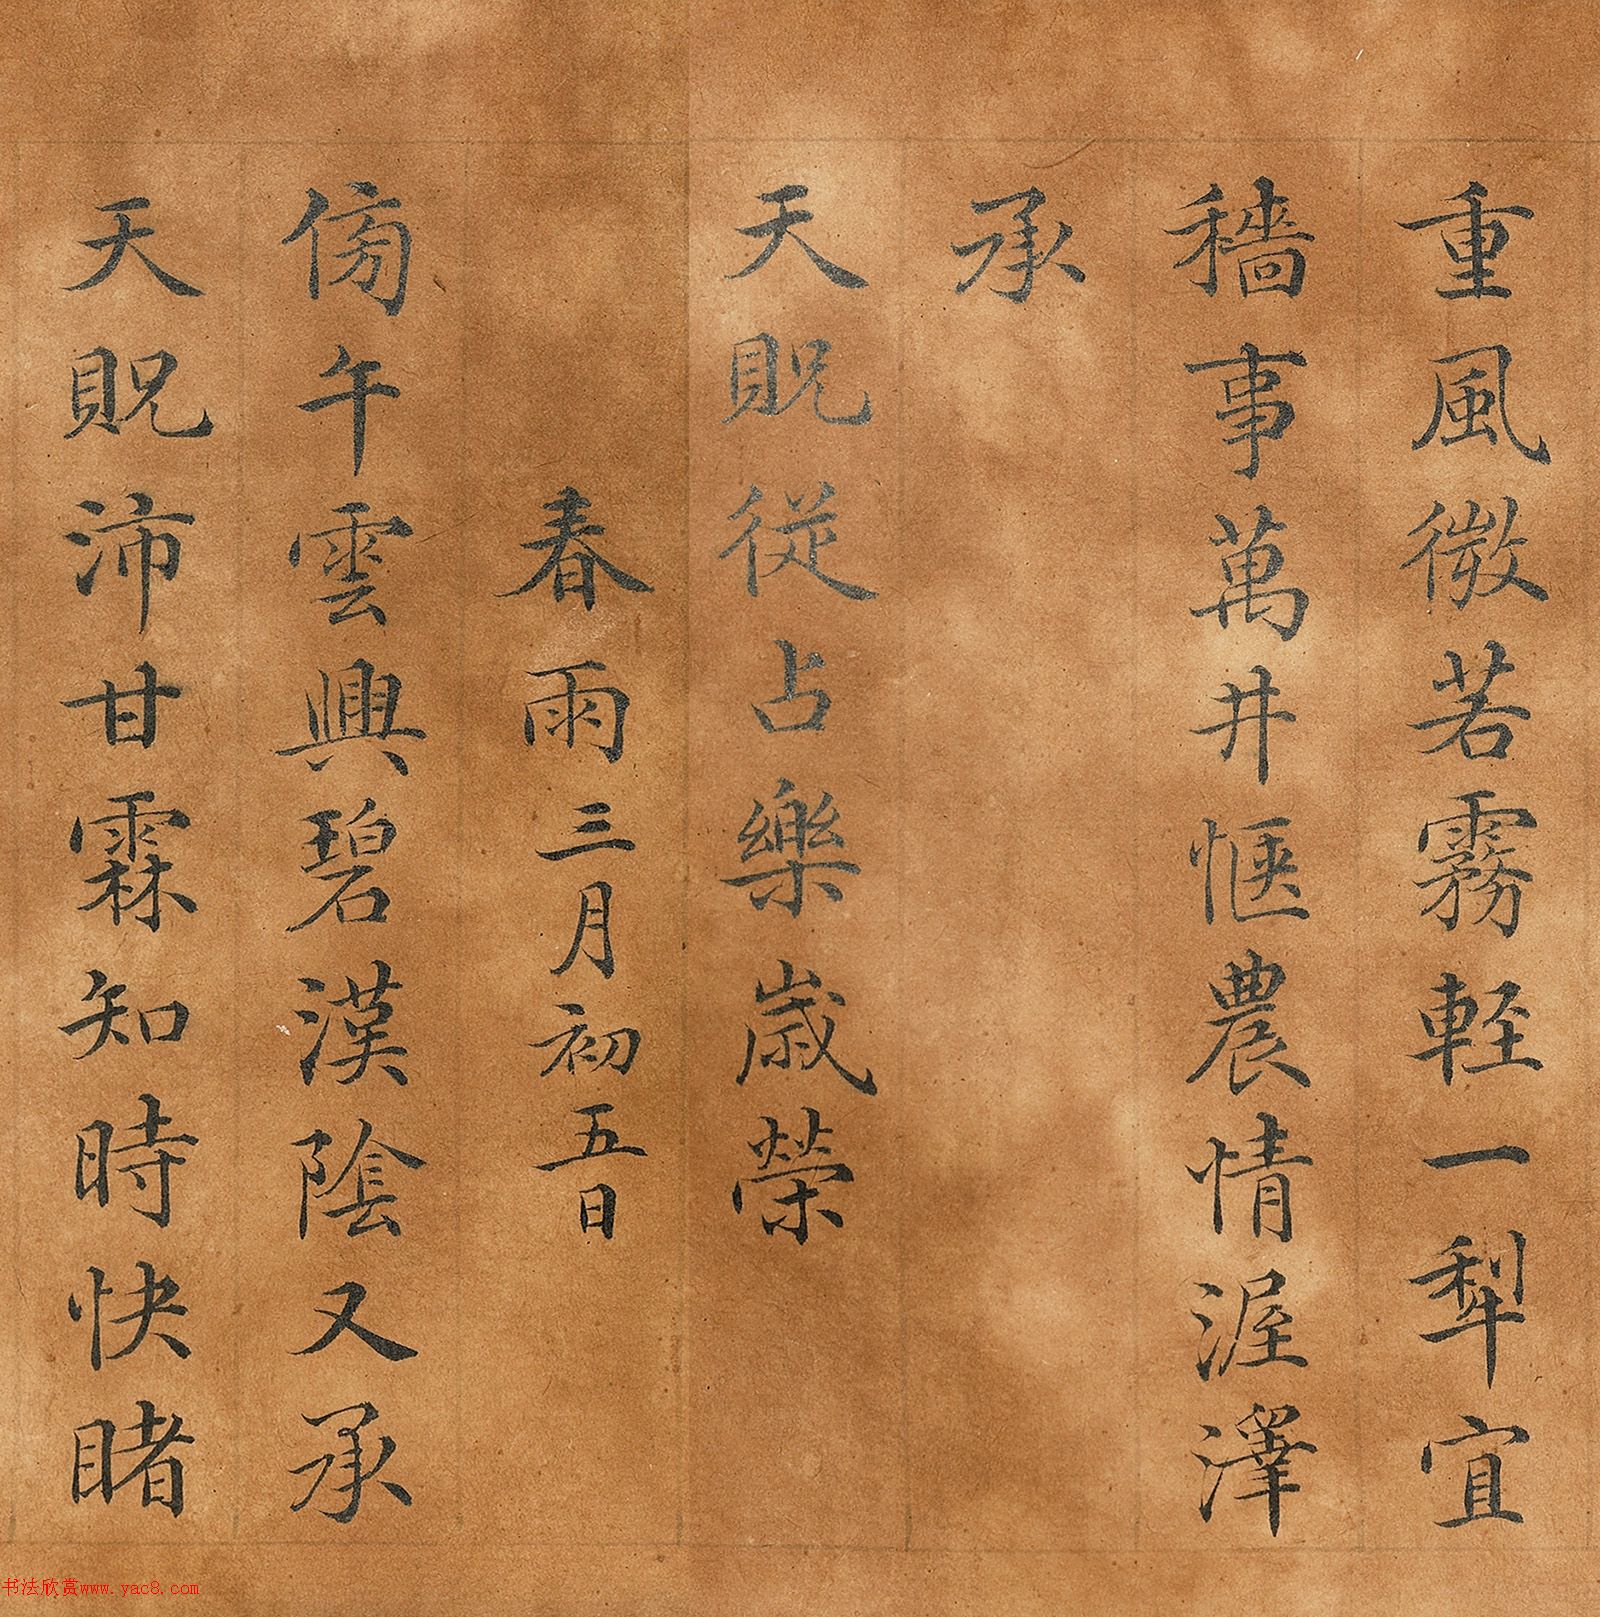 重風微若霧輕一犂宜
穡事萬井愜農情渥澤
承
天貺從占樂歲榮
春雨三月初五日
傍午雲興碧漢陰又承
天貺沛甘霖知時快睹
书法欣赏www.yac8.com